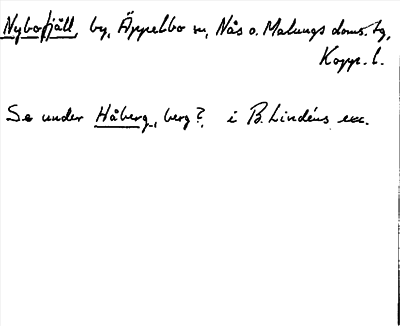 Nybofjäll, by, Äppelbo sn, Nås o. Malungs doms. tg,
Kopp. l.
Se under Håberg, berg?, i B. Lindéns exc.